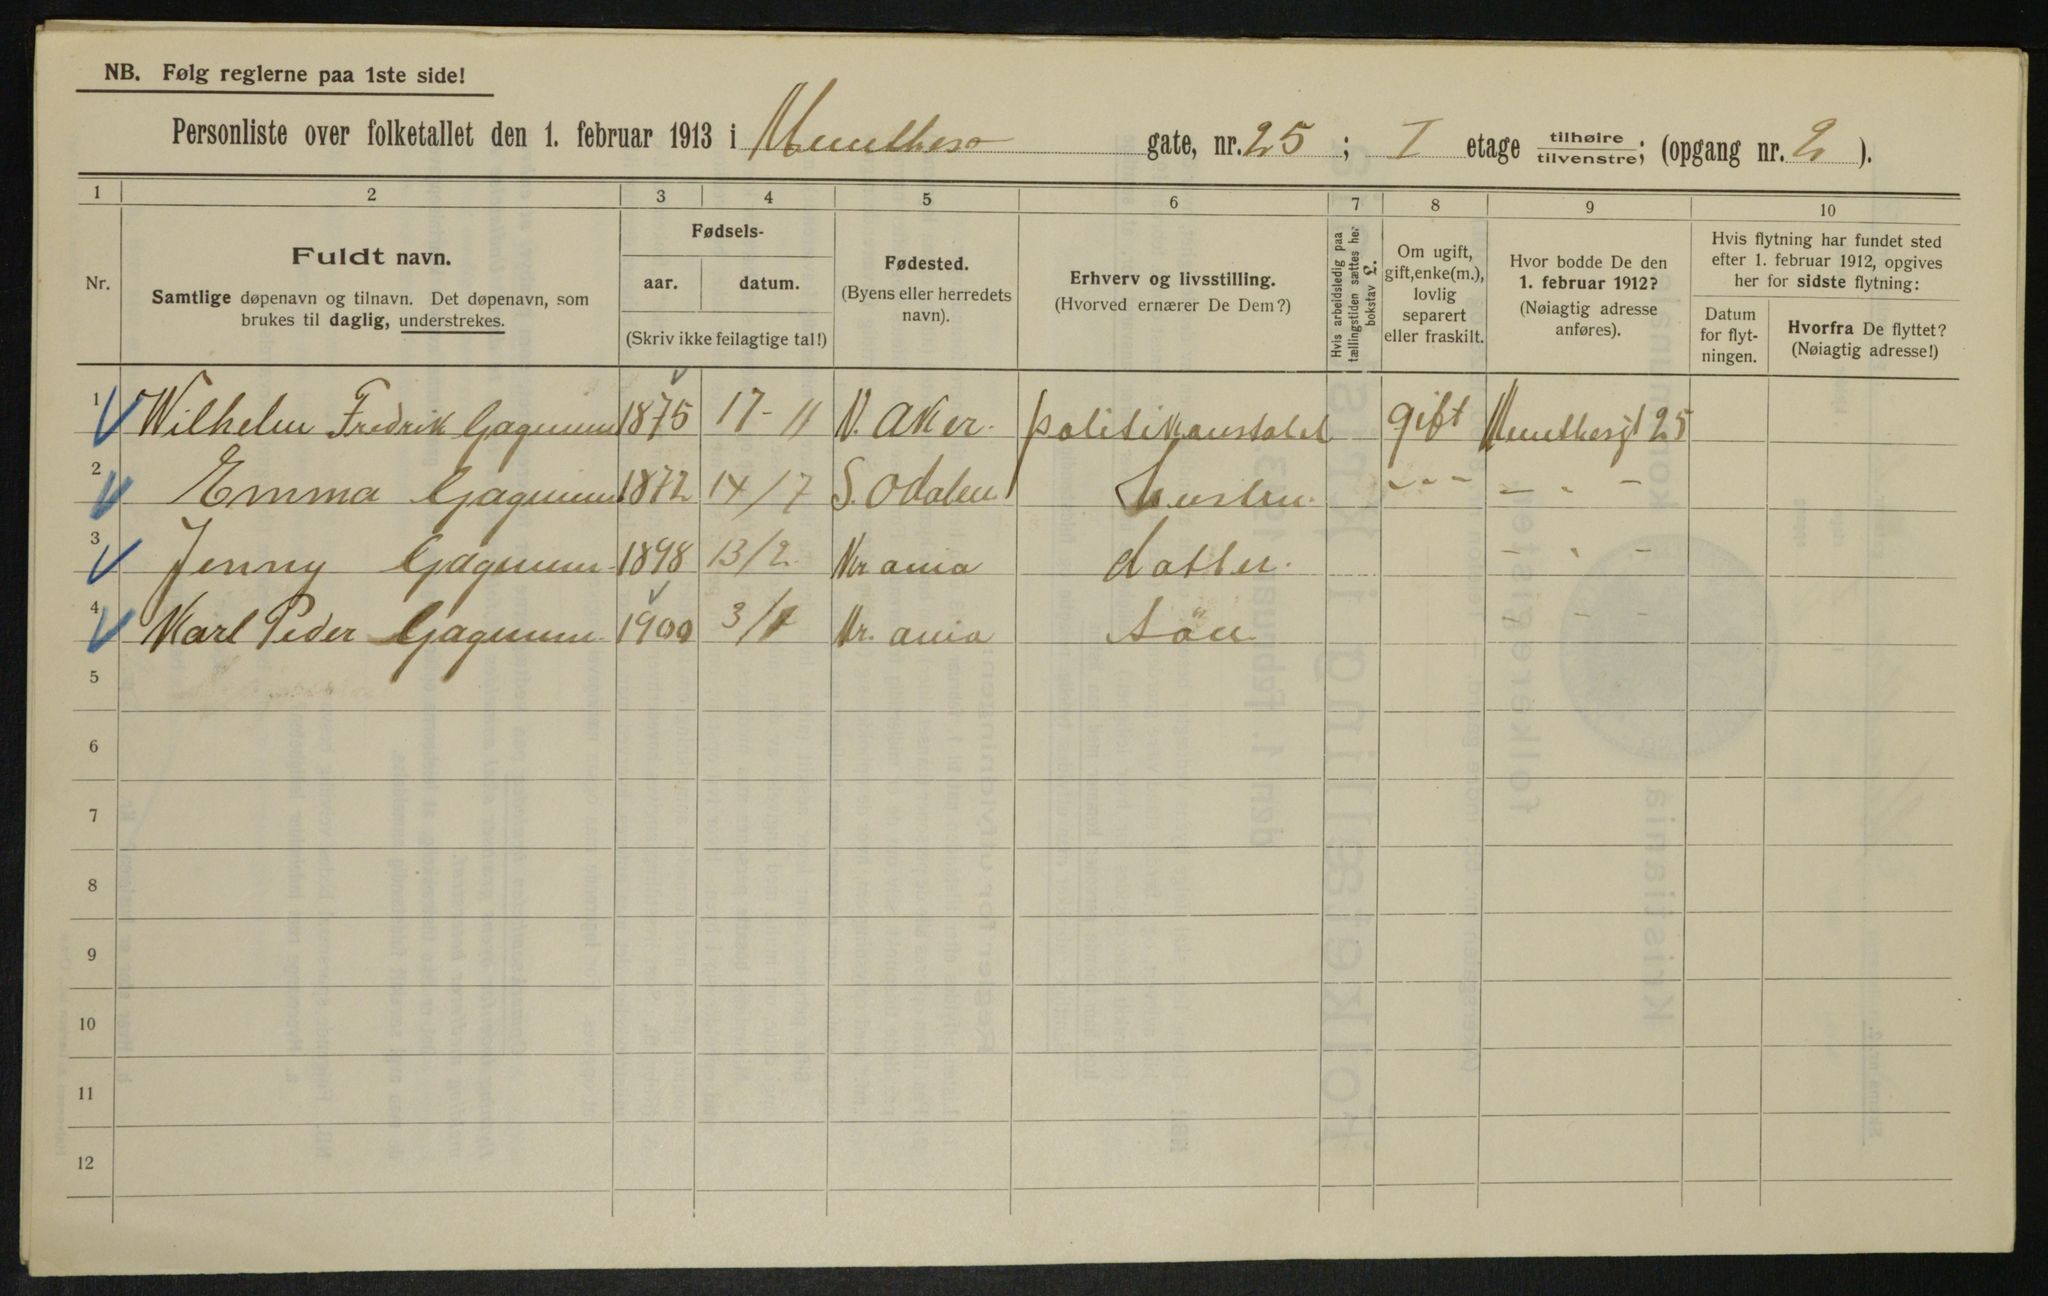 NB. Følg reglerne paa 1ste side!
Personliste over folketallet den 1. februar 1913 i Munthes gate, nr. 25; I etage tilhøire tilvenstre; (opgang nr. 2).
1 2 3 4 5 6 7 8 9 10
Nr.
Fuldt navn.
Samtlige døpenavn og tilnavn. Det døpenavn, som
brukes til daglig, understrekes.
Fødsels-
aar. datum.
(Skriv ikke feilagtige tal!)
Fødested.
(Byens eller herredets
navn).
Erhverv og livsstilling.
(Hvorved ernærer De Dem?)
Hvis arbeidsledig paa
tællingstiden sættes her
bokstav L.
Om ugift,
gift, enke(m.),
lovlig
separert
eller fraskilt.
Hvor bodde De den
1. februar 1912?
(Nøiagtig adresse
anføres).
Hvis flytning har fundet sted
efter 1. februar 1912, opgives
her for sidste flytning:
Datum
for flyt-
ningen.
Hvorfra De flyttet?
(Nøiagtig adresse!)
1 Wilhelm Fredrik Gagnum 1875 17-11 V. Aker. politikonstabel gift Munthesgt 25
2 Emma Gagnum 1872 14/7 S. Odalen hustru. - - - - - -
3 Jenny Gagnum 1898 13/2 Kr ania datter. - - -
4 Karl Peder Gagnum 1900 3/ Kr. ania søn - - -
5
6
7
8
9
10
11
12